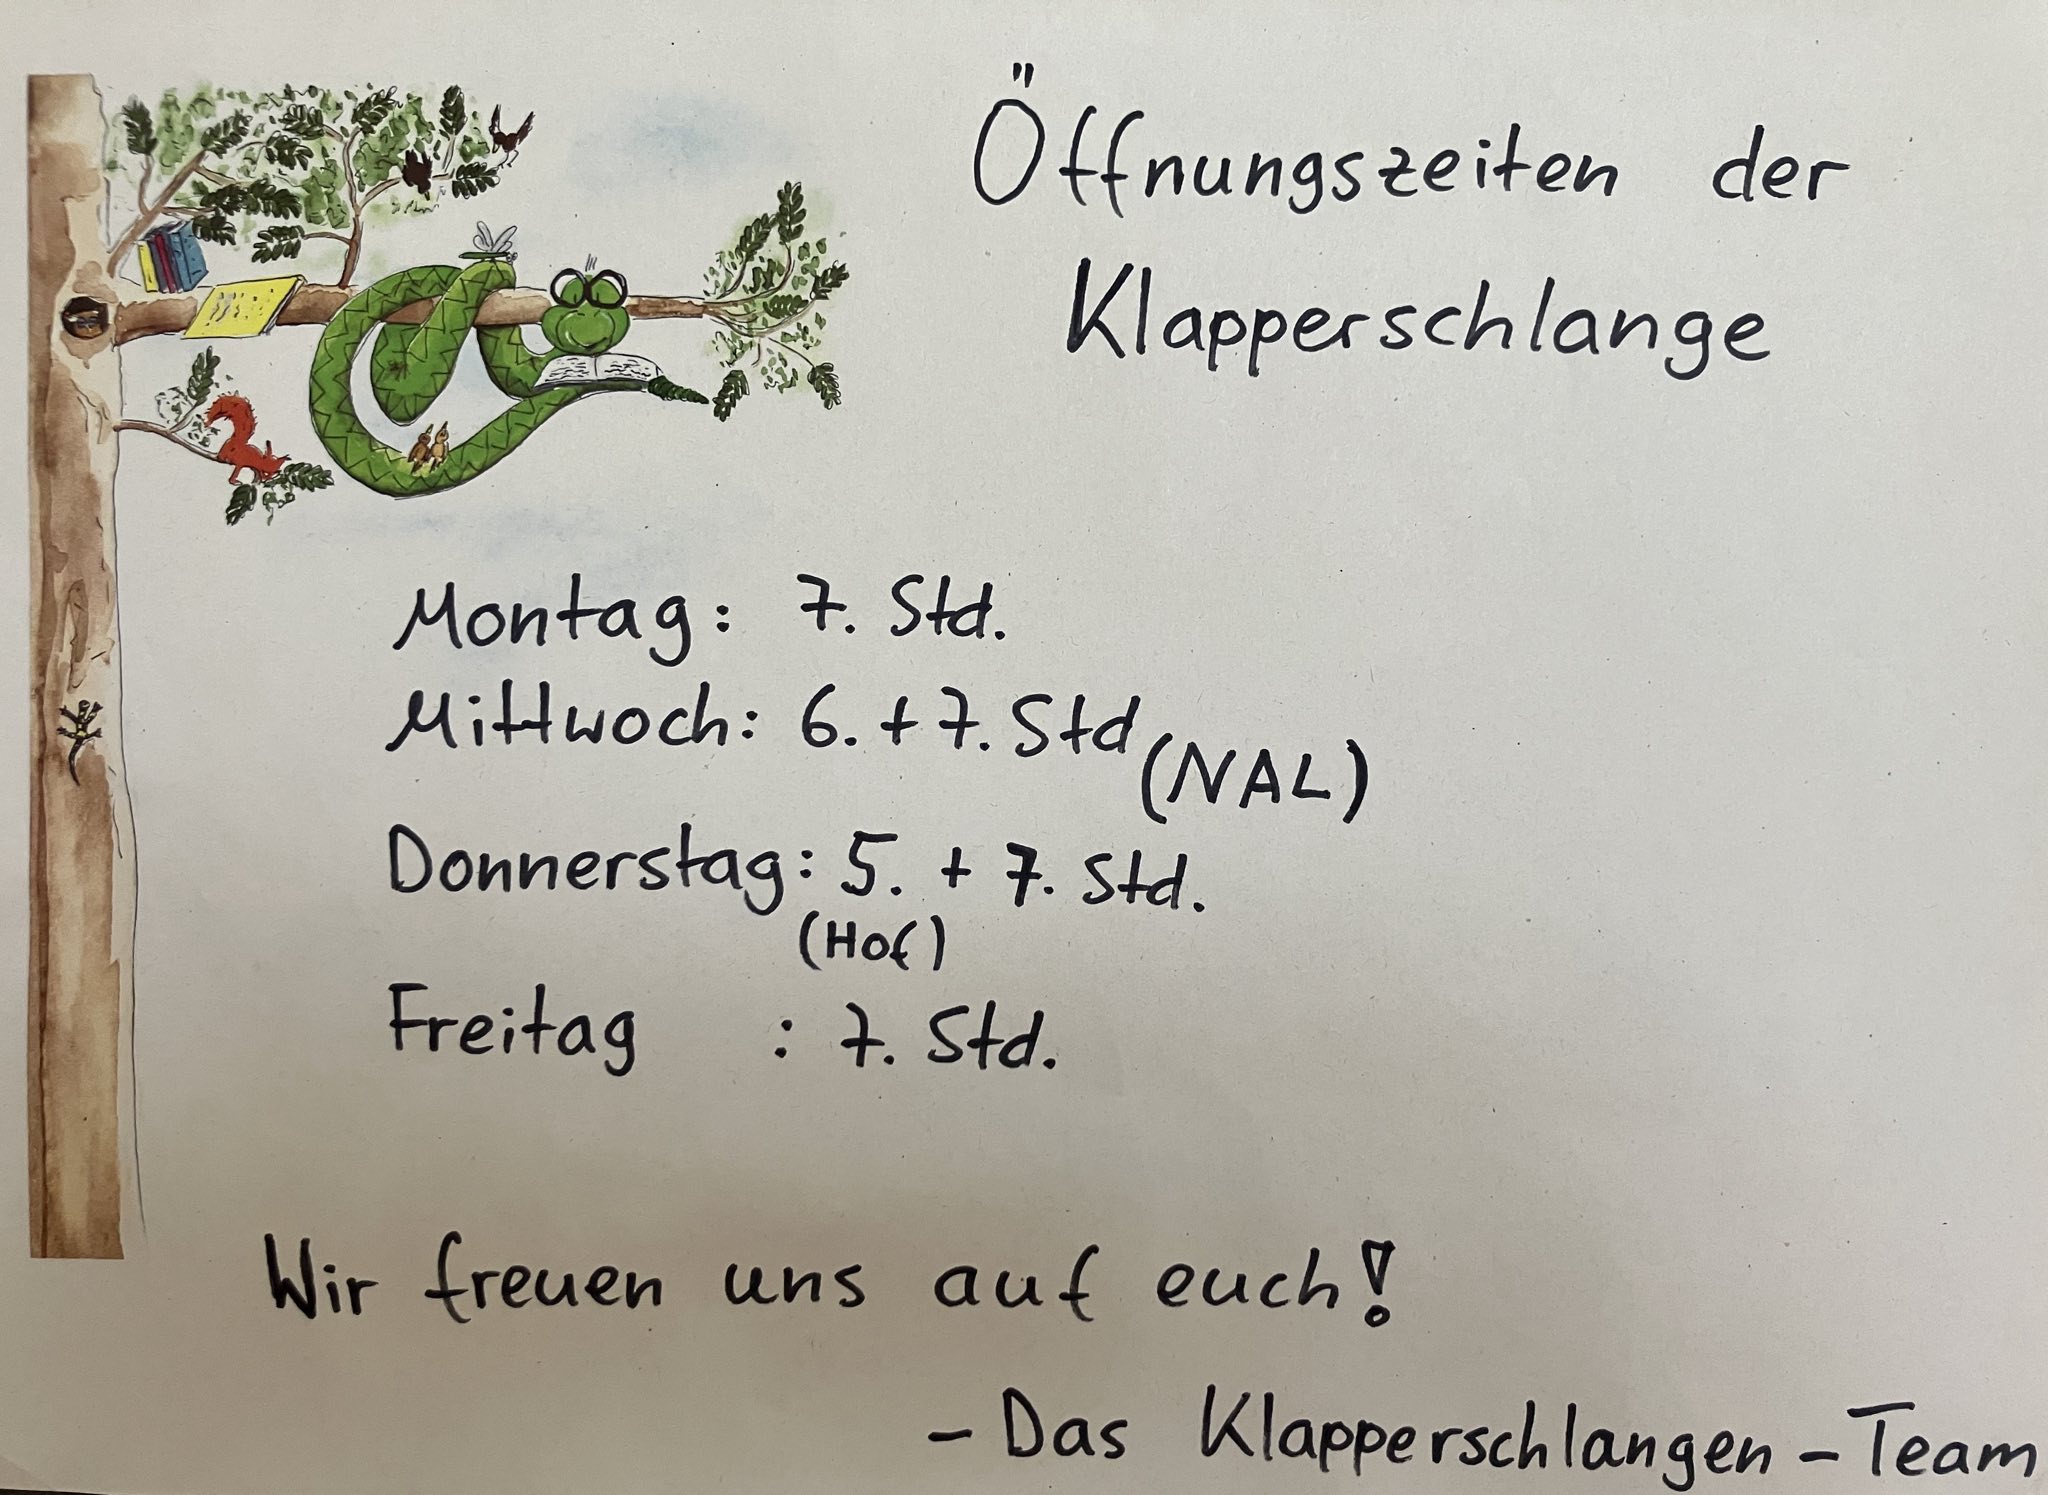 Öffnungszeiten der
Klapperschlange
Montag: 7. Std.
Mittwoch: 6. + 7. Std (NAL)
Donnerstag: 5. + 7. Std.
(Hof)
Freitag : 7. Std.
Wir freuen uns auf euch!
- Das Klapperschlangen-Team